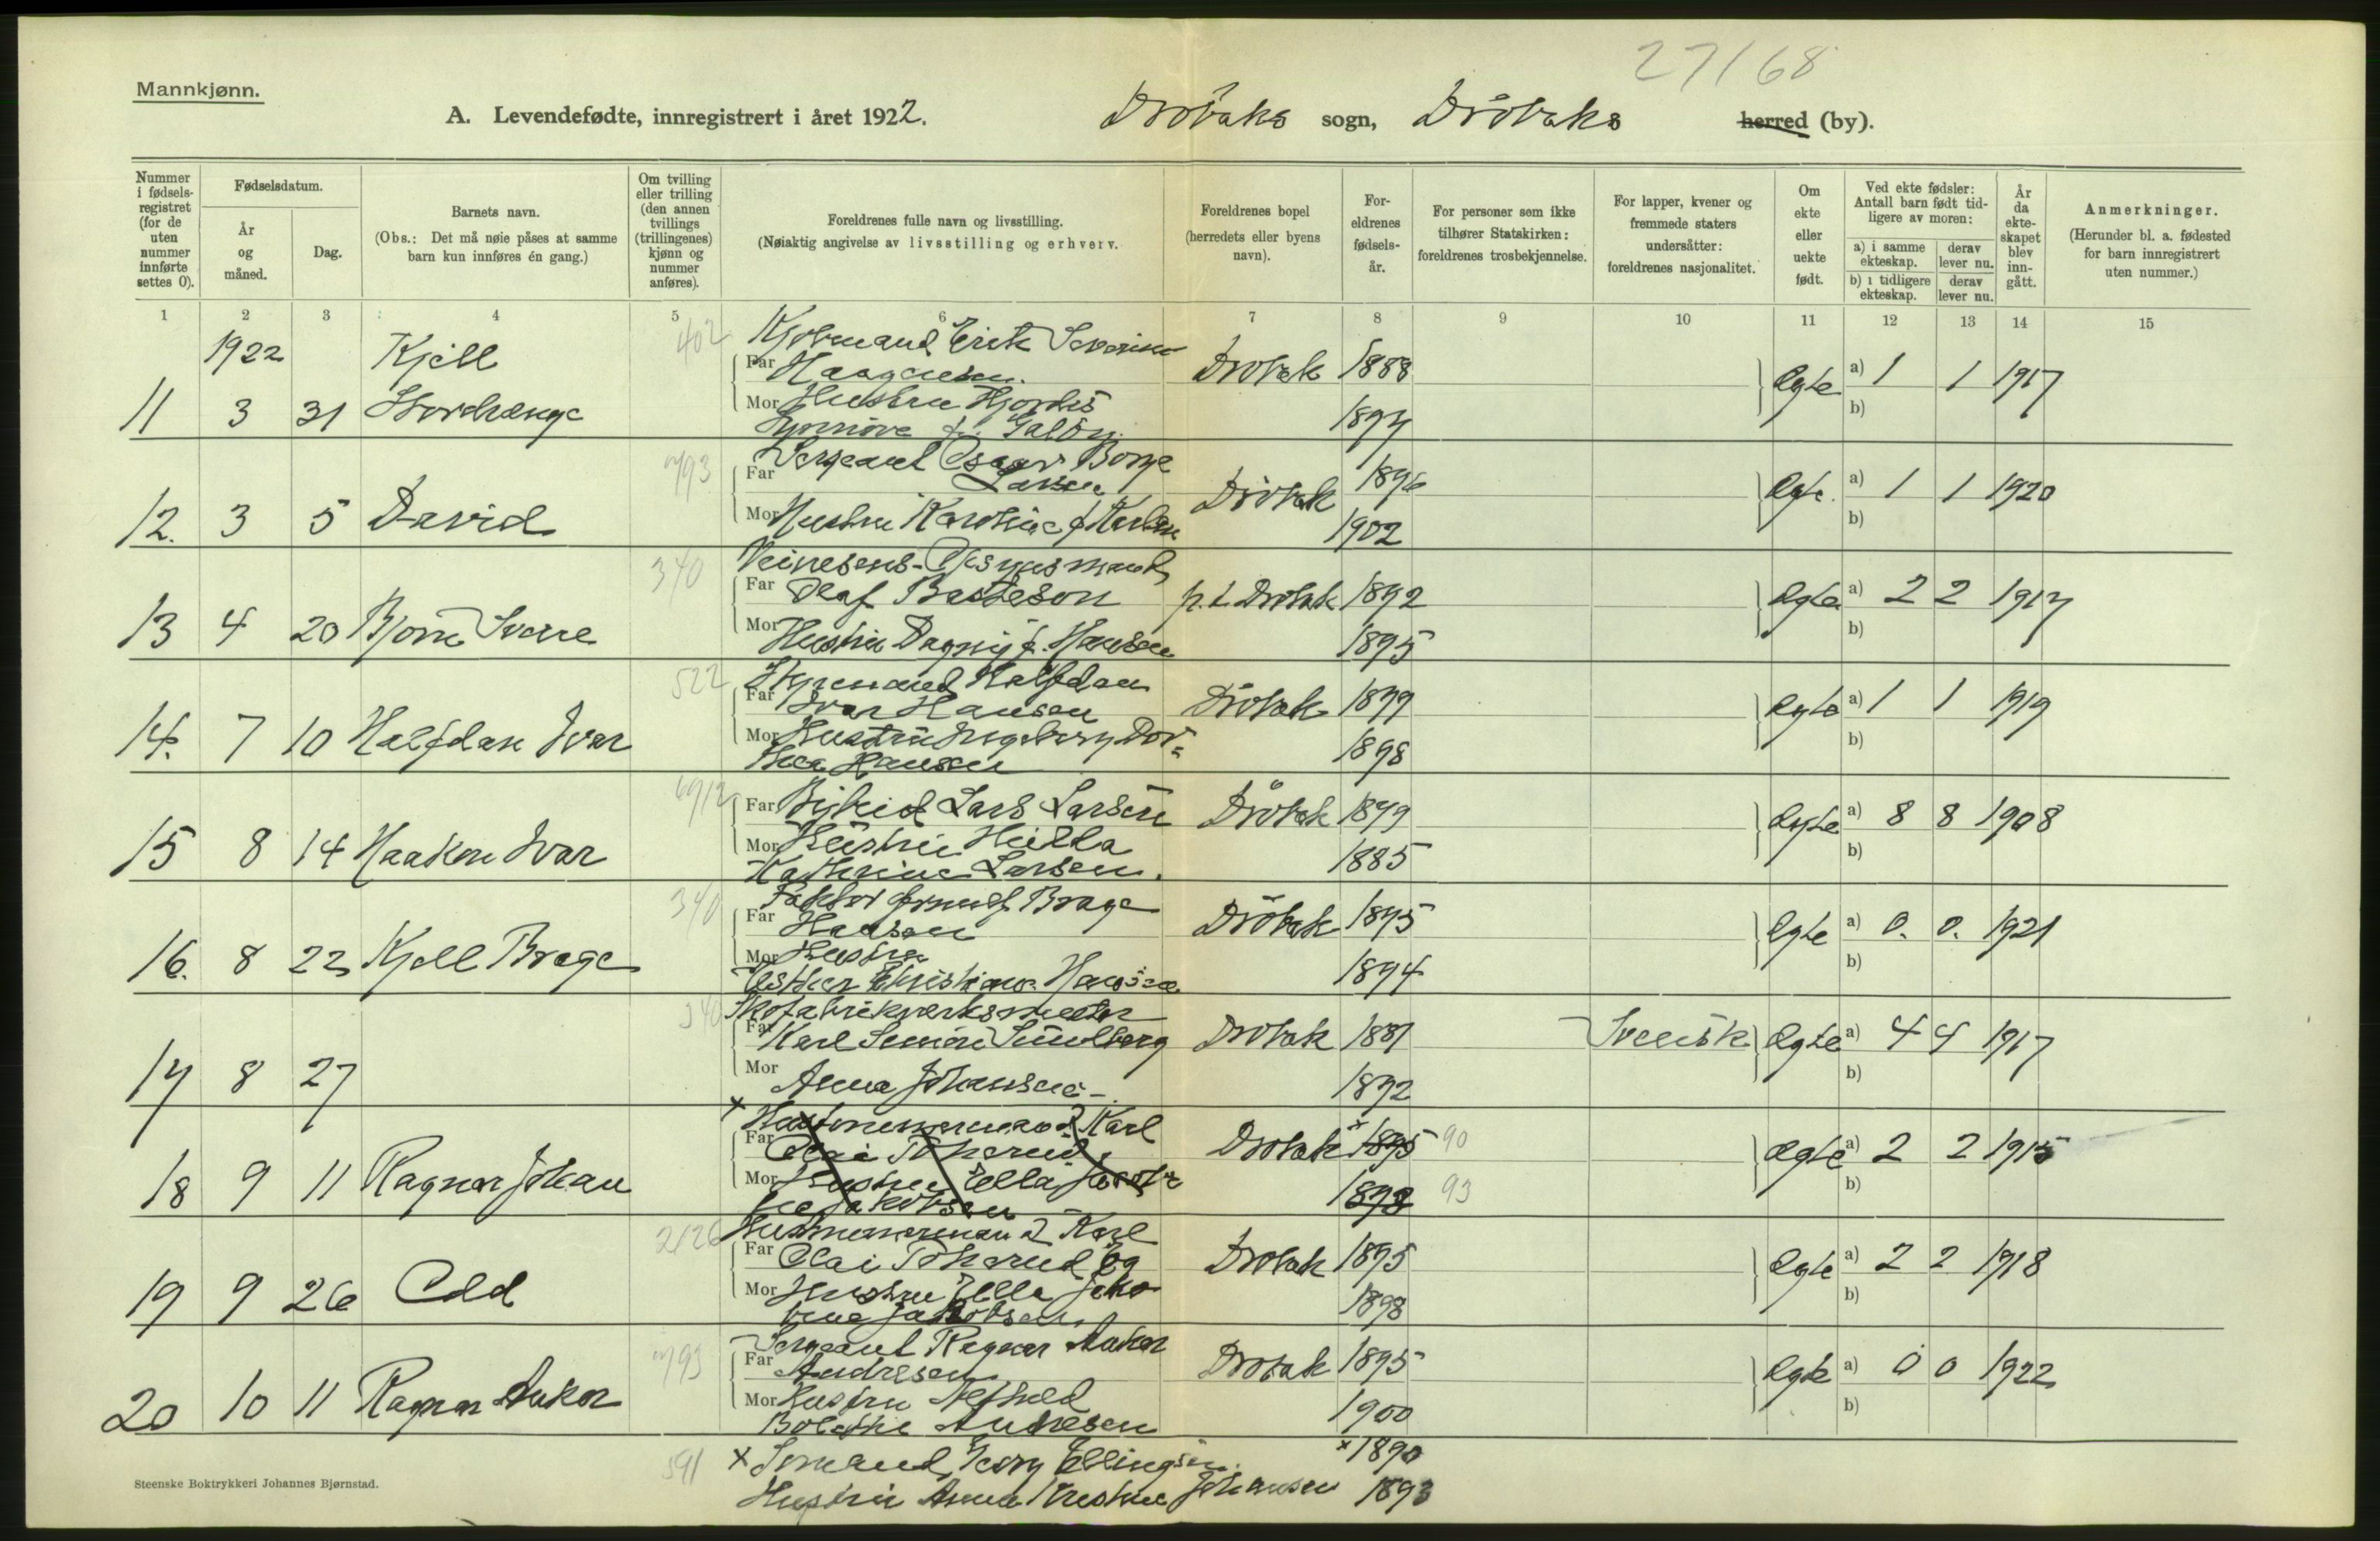 27/68
Mannkjønn.
A. Levendefødte, innregistrert i året 1922. Drøbaks sogn, Drøbaks herred (by).
Nummer i fødselsregistret (for de uten nummer innførte settes 0).
Fødselsdatum.
År og måned.
Dag.
Barnets navn.
(Obs.: Det må nøie påses at samme barn kun innføres én gang.)
Om tvilling eller trilling (den annen tvillings (trillingenes) kjønn og nummer anføres).
Foreldrenes fulle navn og livsstilling.
(Nøiaktig angivelse av livsstilling og erhverv.
Foreldrenes bopel (herredets eller byens navn).
Foreldrenes fødselsår.
For personer som ikke tilhører Statskirken: foreldrenes trosbekjennelse.
For lapper, kvener og fremmede staters undersåtter: foreldrenes nasjonalitet.
Om ekte eller uekte født.
Ved ekte fødsler: Antall barn født tidligere av moren:
a) i samme ekteskap.
derav lever nu.
b) i tidligere ekteskap.
derav lever nu.
År da ekteskapet blev inngått.
Anmerkninger.
(Herunder bl. a. fødested for barn innregistrert uten nummer.)
1 2 3 4 5 6 7 8 9 10 11 12 13 14 15
1922 Kjell 402 Erik Severin
Far Haagensen. Drøbak 1888 Ægte a) 1 1 1917
11 3 31 Mor Hustru Hjørdis b)
1897
793 Sergeant Oscar Borge
Far Larsen Drøbak 1896 Ægte a) 1 1 1920
12. 3 5 David Mor Hustru Karoline f. Karlsen 1902 b)
340 Veivesens-
Far Olaf Basteson p.t. Drøbak 1892 Ægte a) 2 2 1917
13 4 20 Bjørn Sverre Mor Hustru Dagny f. Hansen 1895 b)
522 Styrmand Halfdan
Far Ivar Hansen Drøbak 1899 Ægte a) 1 1 1919
14. 7 10 Halfdan Ivar Mor Hustru Ingeborg Doro-
thea Hansen 1898 b)
Far Lars Larsen Drøbak 1879 Ægte a) 8 8 1908
15 8 14 Haakon Ivar Mor Hustru Hilda
Katherine Larsen. 1885 b)
340 Faktor Brage
Far Hansen Drøbak 1895 Ægte a) 0. 0. 1921
16. 8 22 Kjell Brage Mor Hustru
Esther Christiane Hansen 1894 b)
340 Skofabrikverksmester
Far Karl Simon Sundberg Drøbak 1881 Svensk Ægte a) 4 4 1917
17 8 27 Mor Anna Johansen 1892 b)
x Karl
Far Olai Drøbak x 1895 90 Ægte a) 2 2 1915
18 9 11 Ragnar Johan Mor Hustru Ella Jako
bine Jakobsen 1898 93 b)
2126 Karl
Far Olai Drøbak 1895 Ægte a) 2 2 1918
19 9 26 Odd Mor Hustru Ella Jako
bine Jakobsen 1898 b)
793 Sergeant Ragnar Anker
Far Andresen Drøbak 1895 Ægte a) 0 0 1922
20 10 11 Ragnar Anker Mor Hustru
Bolette Andresen 1900 b)
591 x Sømand Georg Ellingsen. x 1890
Hustru Anna Kristine Johansen 1893
Steenske Boktrykkeri Johannes Bjørnstad.